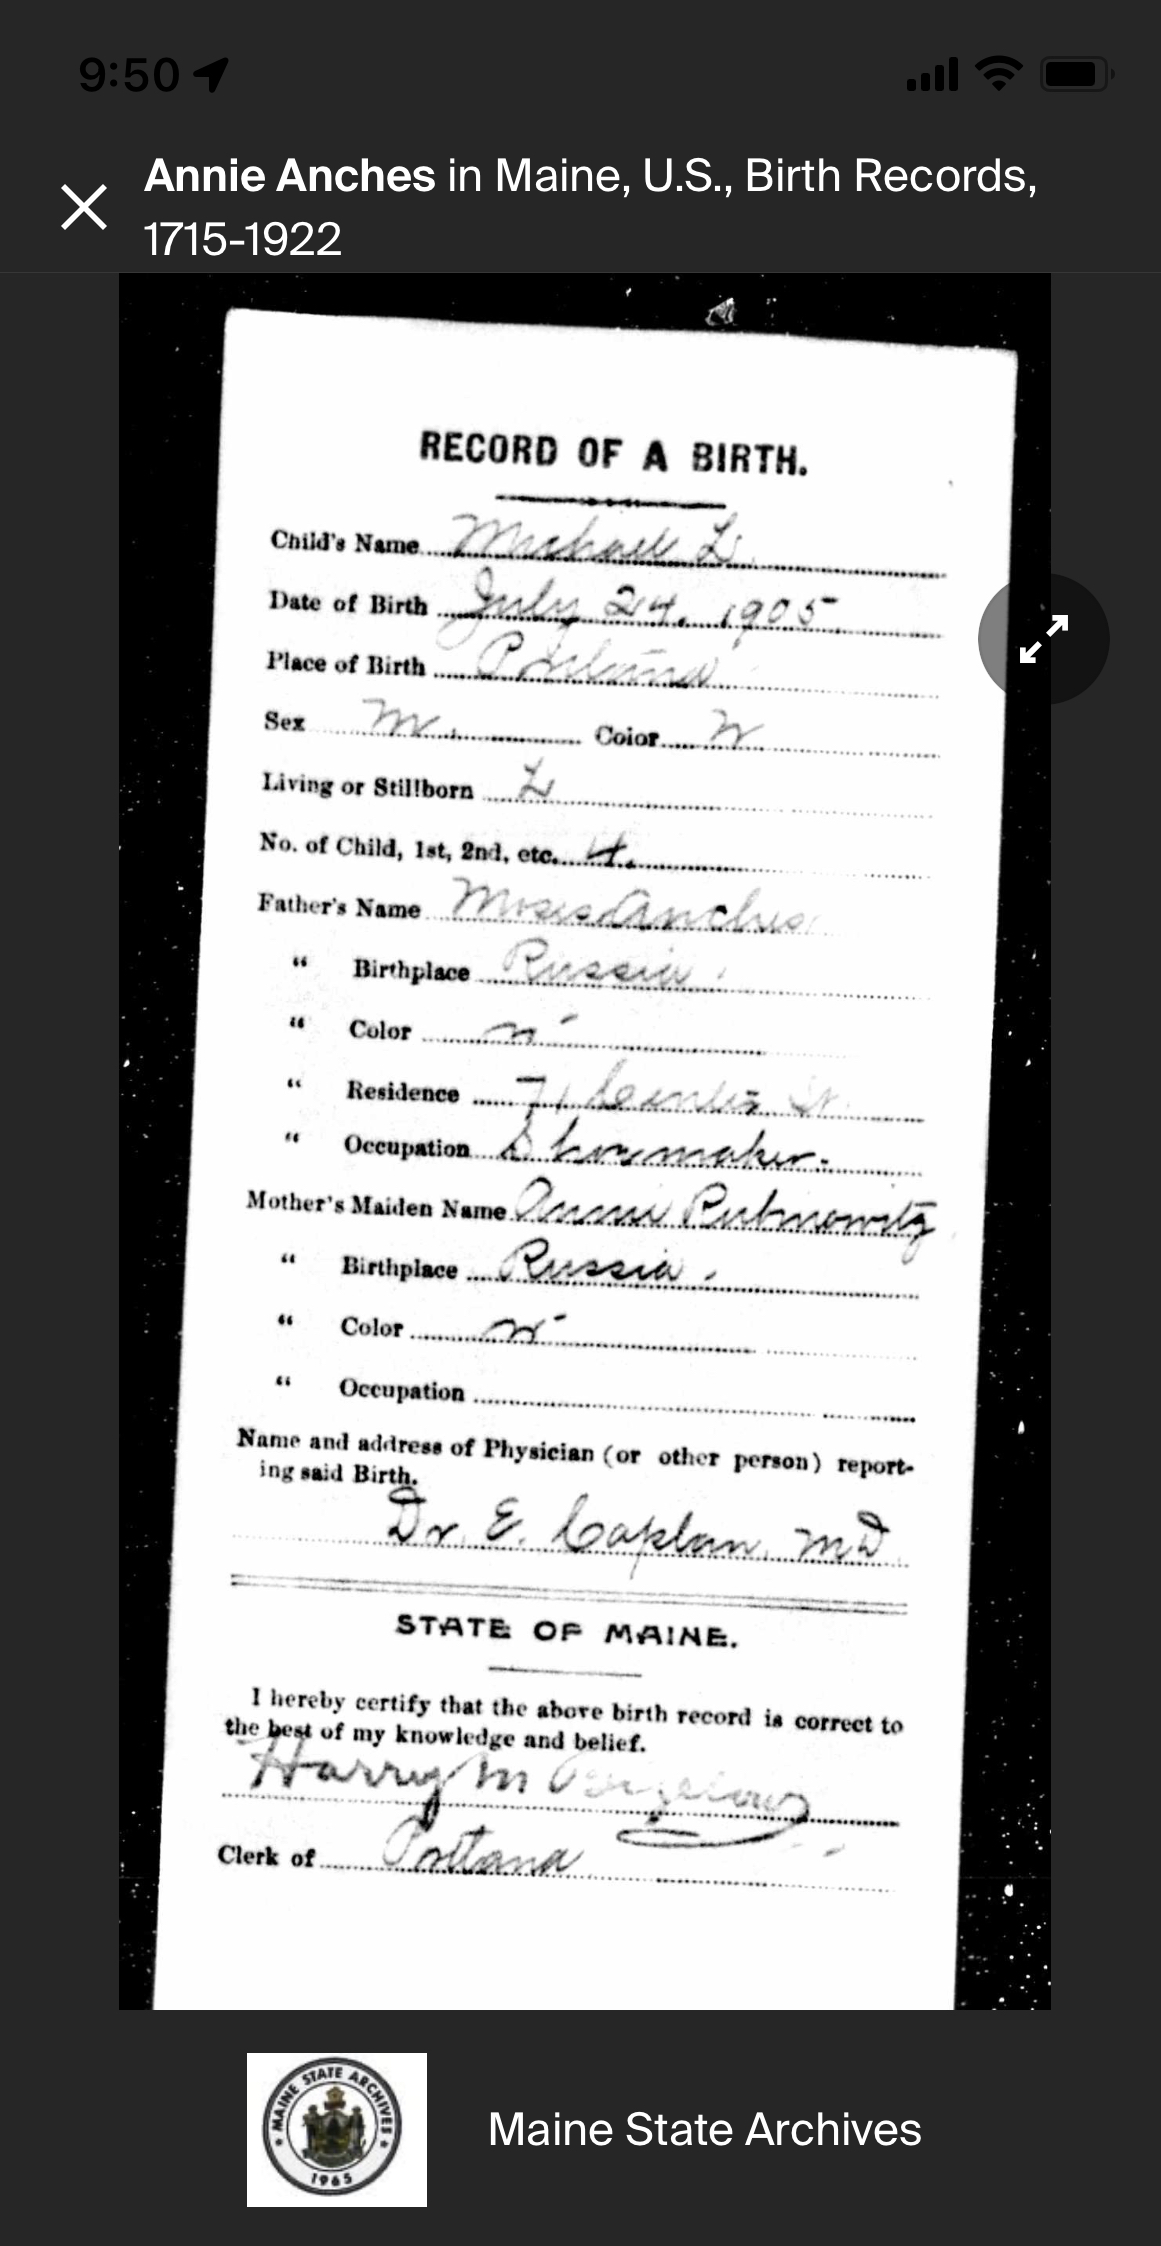 9:50
Annie Anches in Maine, U.S., Birth Records,
1715-1922
RECORD OF A BIRTH.
Child's Name Michael L.
Date of Birth July 24, 1905
Place of Birth Portland
Sex M. Color W
Living or Stillborn L
No. of Child, 1st, 2nd, etc. 4.
Father's Name Moses Anches
" Birthplace Russia.
" Color W
" Residence 71 St.
" Occupation Shoemaker.
Mother's Maiden Name Annie
" Birthplace Russia.
" Color W
" Occupation
Name and address of Physician (or other person) report-
ing said Birth.
Dr. E. Caplan, MD.
STATE OF MAINE.
I hereby certify that the above birth record is correct to
the best of my knowledge and belief.
Harry M Bigelow
Clerk of Portland
MAINE STATE ARCHIVES
1965
Maine State Archives